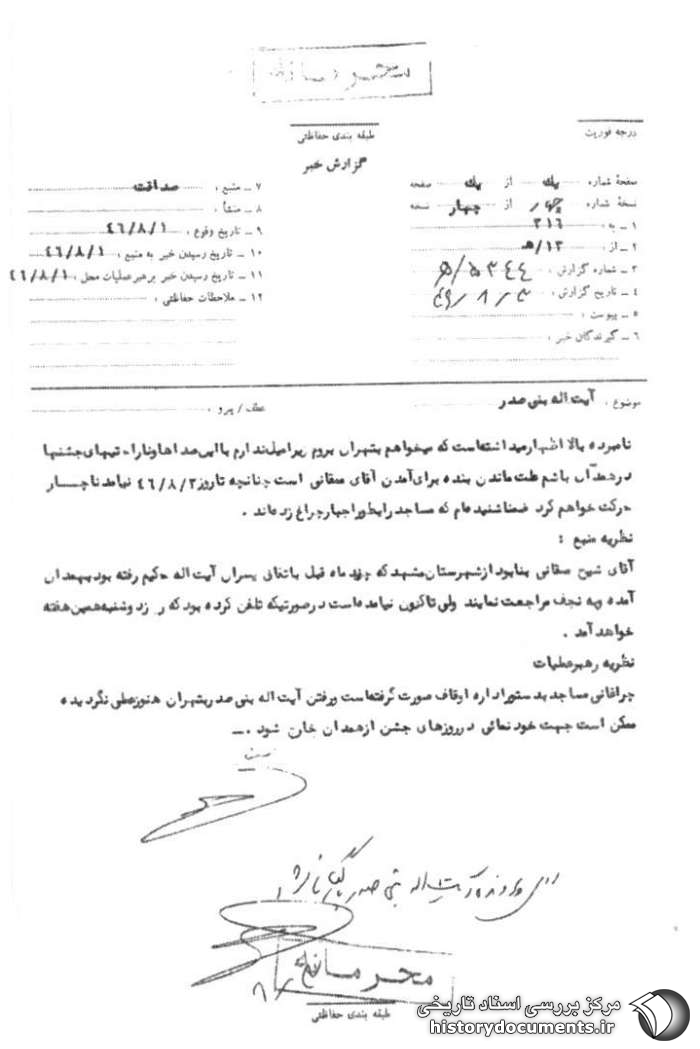 محرمانه
درجه فوریت
طبقه بندی حفاظتی
گزارش خبر
صفحهٔ شماره یك از یك صفحه
نسخهٔ شماره چهار از چهار نسخه
۱ ـ به : ۳۱۶
۲ ـ از : ۱۳/ه‍
۳ ـ شماره گزارش : ۵۳۴۴/ه‍
۴ ـ تاریخ گزارش : ۴۶/۸/۳
۵ ـ پیوست :
۶ ـ گیرندگان خبر :
۷ ـ منبع : صداقت
۸ ـ منشأ :
۹ ـ تاریخ وقوع : ۴۶/۸/۱
۱۰ ـ تاریخ رسیدن خبر به منبع : ۴۶/۸/۱
۱۱ ـ تاریخ رسیدن خبر برهبر عملیات محل : ۴۶/۸/۱
۱۲ ـ ملاحظات حفاظتی :
موضوع : آیت اله بنی صدر
عطف / پیرو :
نامبرده بالا اظهار میداشته است که میخواهم بتهران بروم زیرا میل ندارم با این صداها و ناراحتیهای جشنها
در همدان باشم علت ماندن بنده برای آمدن آقای صقانی است چنانچه تا روز ۴۶/۸/۳ نیامد ناچار
حرکت خواهم کرد ضمنا شنیده‌ام که مساجد را بطور اجبار چراغ زده‌اند .
نظریه منبع :
آقای شیخ صقانی بنابود از شهرستان مشهد که چند ماه قبل باتفاق پسران آیت اله حکیم رفته بود بهمدان
آمده وبه نجف مراجعت نمایند ولی تاکنون نیامده است در صورتیکه تلفن کرده بود که روز دوشنبه همین هفته
خواهد آمد .
نظریه رهبر عملیات
چراغانی مساجد بدستور اداره اوقاف صورت گرفته است ورفتن آیت اله بنی صدر بتهران هنوز عملی نگردیده
ممکن است جهت خودنمائی در روزهای جشن از همدان خارج شود .ــ
آیت اله بنی صدر بایگانی شود
محرمانه
طبقه بندی حفاظتی
مرکز بررسی اسناد تاریخی
historydocuments.ir